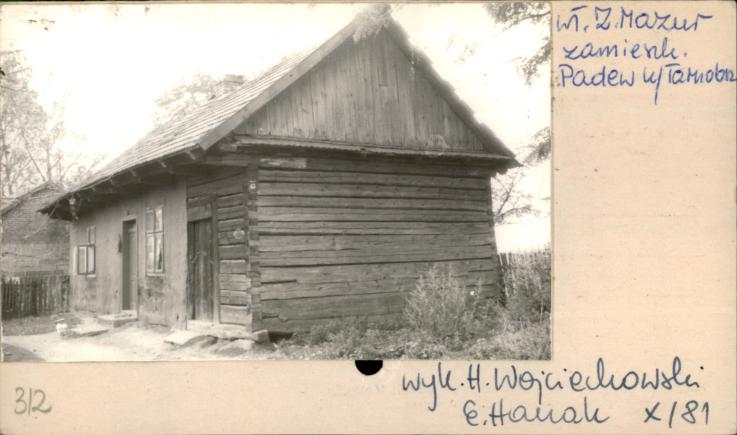 wł. Z. Mazur
zamieszk.
Padew k/Tarnobrz
wyk. H. Wojciechowski
E. Hanak x/81
312